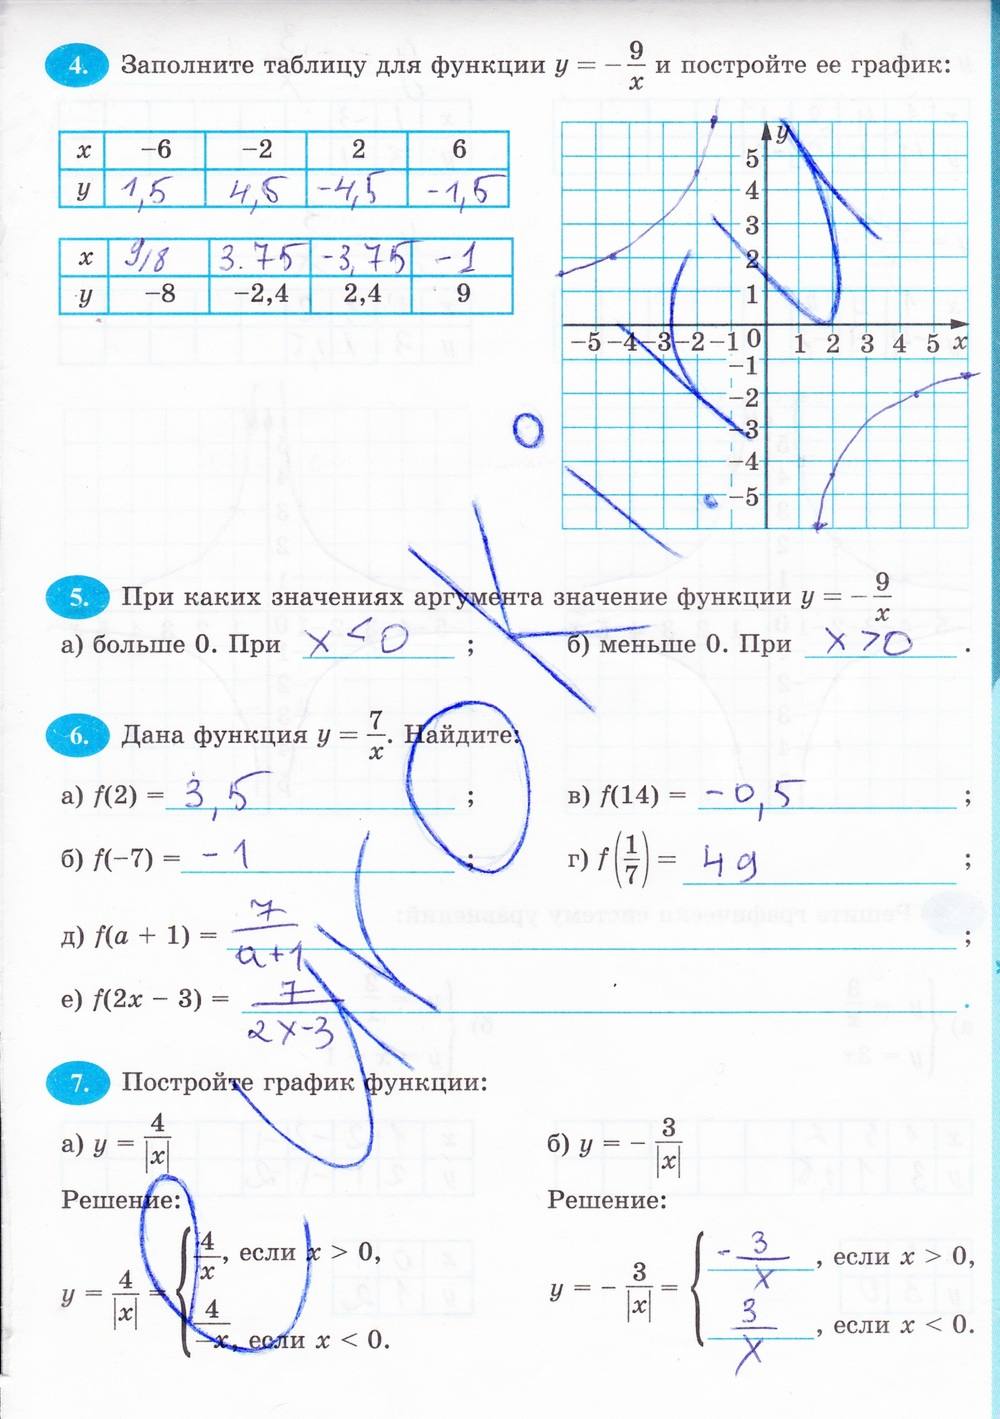 4. Заполните таблицу для функции y = −9/x и постройте ее график:
x −6 −2 2 6
y 1,5 4,5 -4,5 -1,5
x 9/8 3.75 -3,75 -1
y −8 −2,4 2,4 9
y
5
4
3
2
1
−5 −4 −3 −2 −1 0 1 2 3 4 5 x
−1
−2
−3
−4
−5
5. При каких значениях аргумента значение функции y = −9/x
а) больше 0. При x < 0 ; б) меньше 0. При x > 0 .
6. Дана функция y = 7/x. Найдите:
а) f(2) = 3,5 ; в) f(14) = -0,5 ;
б) f(−7) = -1 ; г) f(1/7) = 49 ;
д) f(a + 1) = 7/(a+1) ;
е) f(2x − 3) = 7/(2x-3) .
7. Постройте график функции:
а) y = 4/|x| б) y = − 3/|x|
Решение: Решение:
y = 4/|x| = { 4/x, если x > 0, y = − 3/|x| = { -3/x , если x > 0,
4/−x, если x < 0. 3/x , если x < 0.